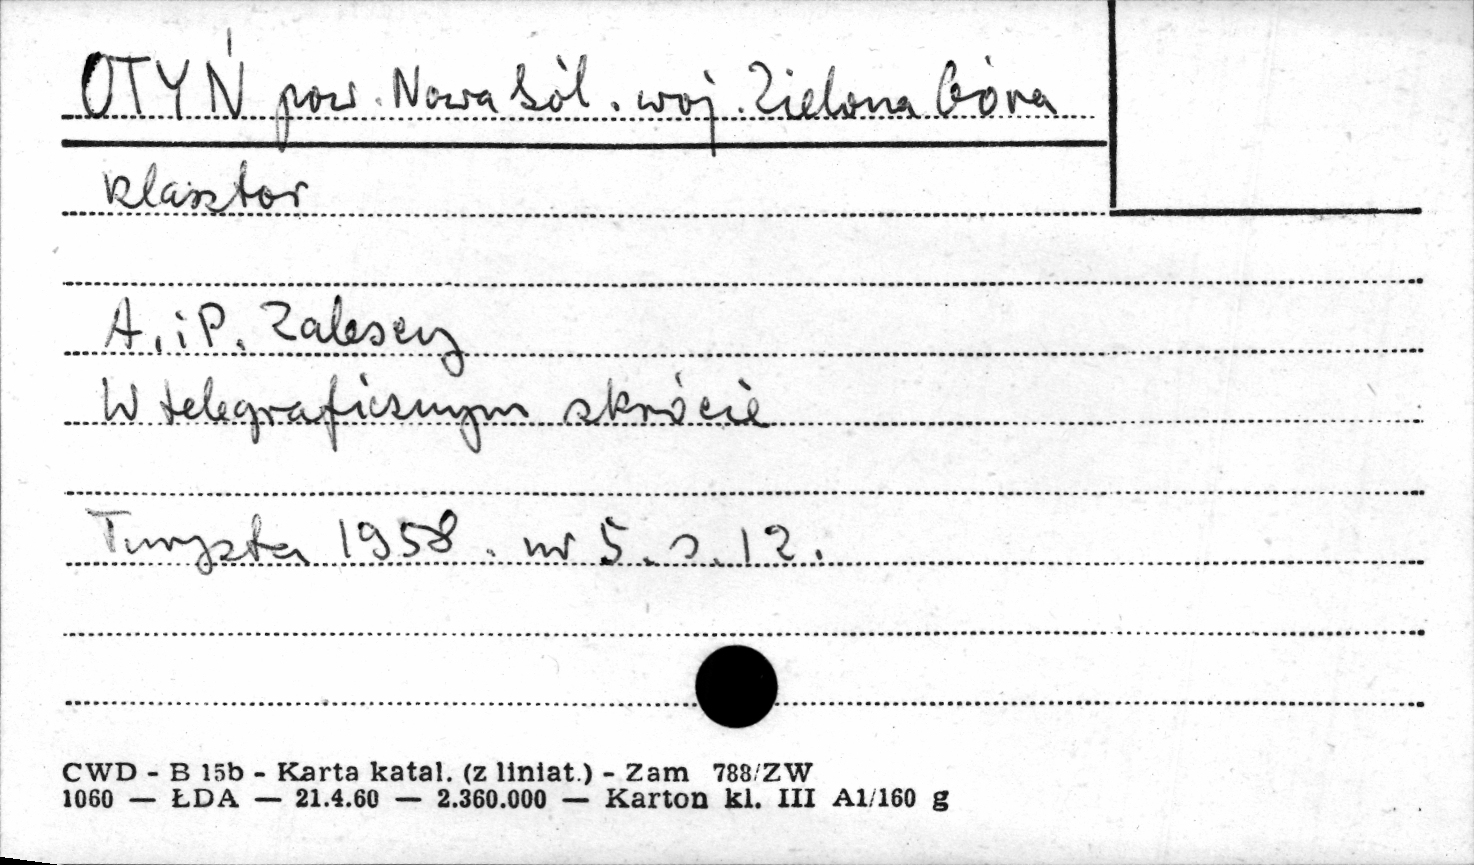 OTYŃ pow. Nowa Sól. woj. Zielona Góra
klasztor
A. i P. Zalescy
W telegraficznym skrócie
Turysta 1958. nr 5. s. 12.
CWD - B 15b - Karta katal. (z liniat.) - Zam 788/ZW
1060 — ŁDA — 21.4.60 — 2.360.000 — Karton kl. III A1/160 g